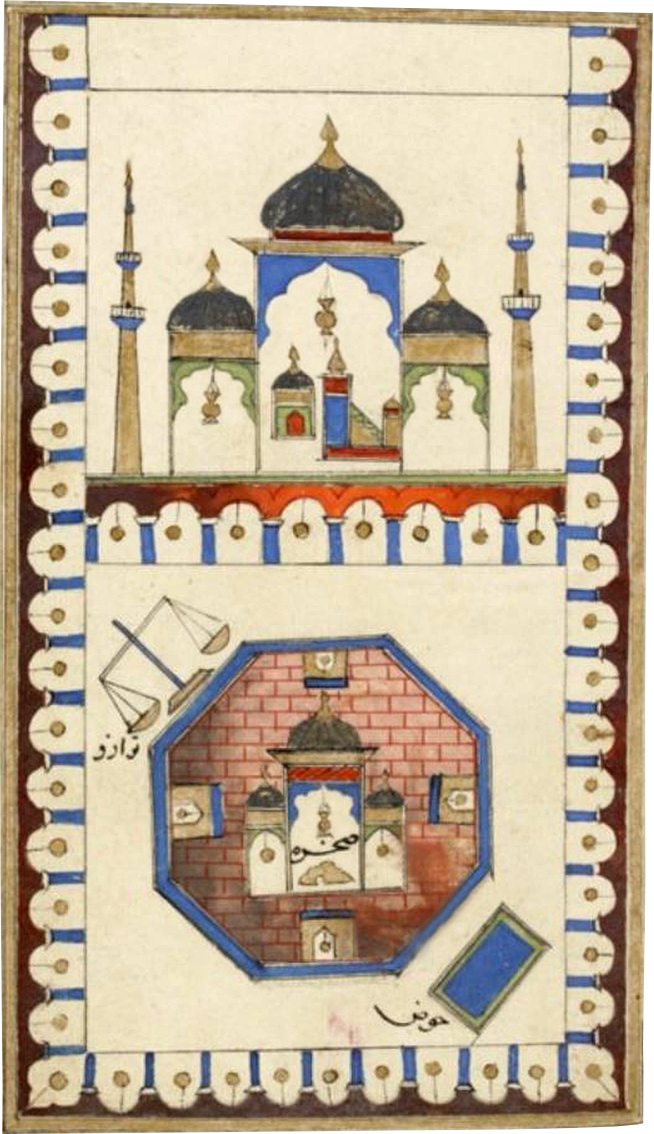 ترازو
صخره
حوض